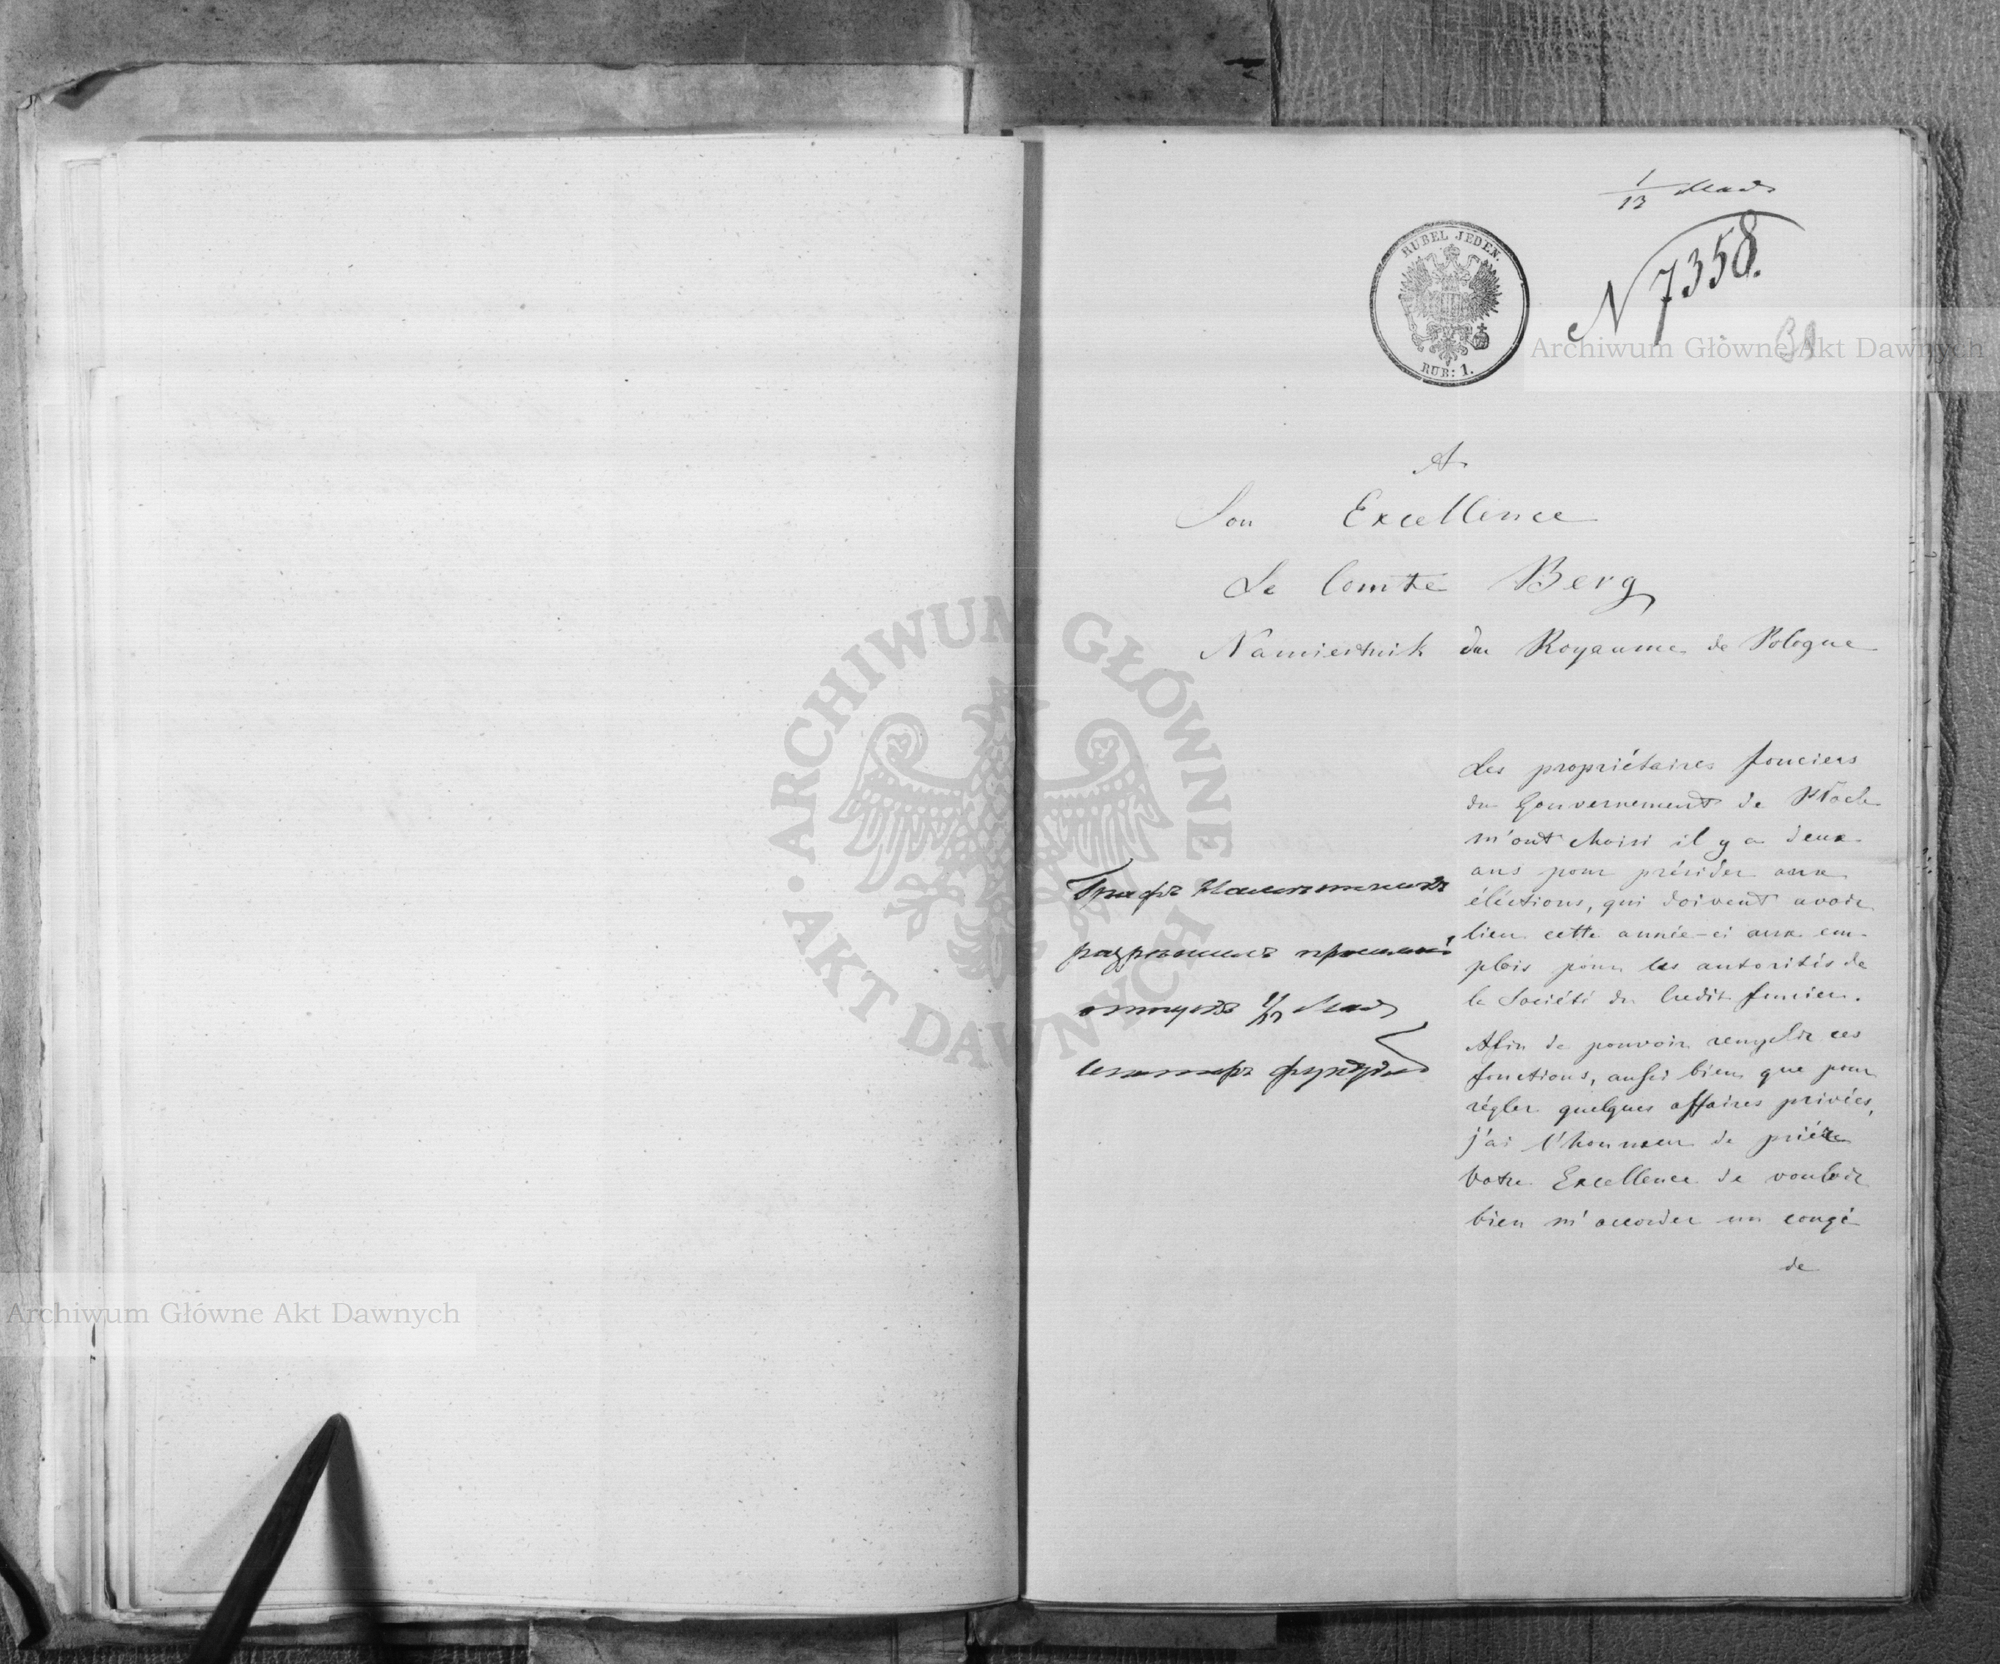 1/13 Мая
N 7358.
RUBEL JEDEN.
RUB: 1.
A
Son Excellence
Le Comte Berg
Namiestnik du Royaume de Pologne
Les propriétaires fonciers
du Gouvernement de Płock
m'ont choisi il y a deux
ans pour présider aux
éléctions, qui doivent avoir
lieu cette année-ci aux em-
plois pour les autorités de
la Société du Credit foncier.
Afin de pouvoir remplir ces
fonctions, aussi bien que pour
régler quelques affaires privées,
j'ai l'honneur de prier
Votre Excellence de vouloir
bien m'accorder un congé
de
Графъ Намѣстникъ
разрѣшилъ просимый
отпускъ 1/13 Мая
Сенаторъ
Archiwum Główne Akt Dawnych
Archiwum Główne Akt Dawnych
ARCHIWUM GŁÓWNE AKT DAWNYCH